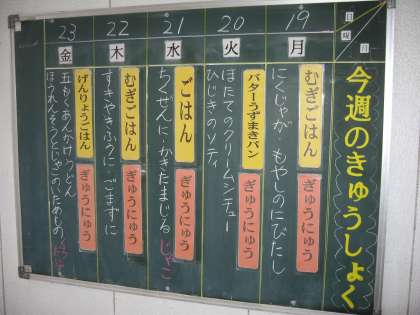 今週のきゅうしょく
日
曜日
19
月
むぎごはん
ぎゅうにゅう
にくじゃが・もやしのにびたし
20
火
バターうずまきパン
ぎゅうにゅう
ほたてのクリームシチュー
ひじきのソティ
21
水
ごはん
ぎゅうにゅう
ちくぜんに・かきたまじる
じゃこ
22
木
むぎごはん
ぎゅうにゅう
すきやきふうに・ごまずに
23
金
げんりょうごはん
ぎゅうにゅう
五もくあんかけうどん
ほうれんそうとじゃこのいためもの